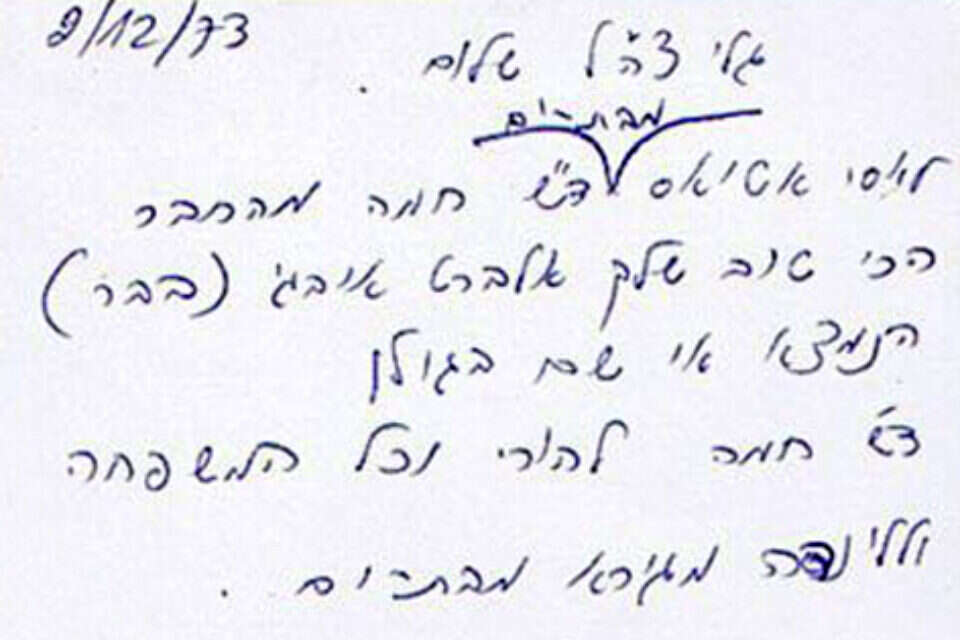 9/12/73
גלי צה"ל שלום.
מבת-ים
לאסי אטיאס ד"ש חמה מהחבר
הכי טוב שלך אלברט איבגי (בבר)
הנמצא אי שם בגולן
ד"ש חמה להורי וכל המשפחה
וללינדה מגירא מבת-ים.